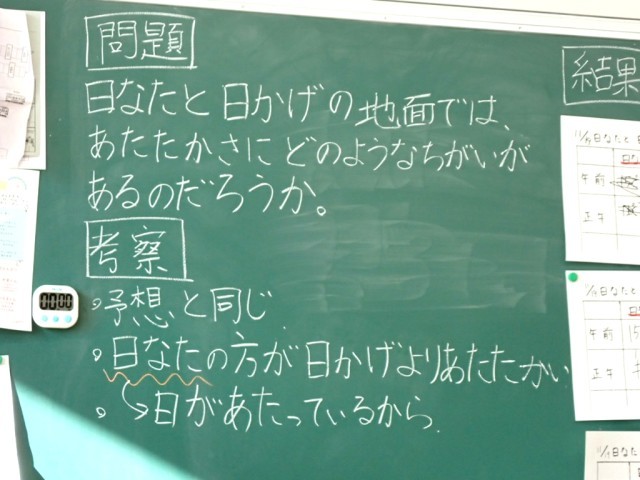 問題
日なたと日かげの地面では、
あたたかさにどのようなちがいが
あるのだろうか。
考察
・予想と同じ
・日なたの方が日かげよりあたたかい
・↳日があたっているから.
結果
00:00
11/9日なたと日
午前
正午
日なたと
午前
15
正午
日なたと